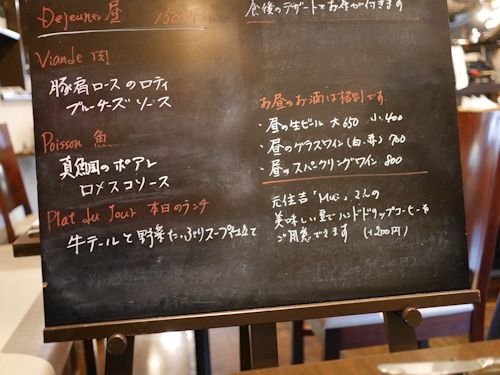 Dejeuner 昼 1500円
Viande 肉
豚肩ロースのロティ
ブルーチーズソース
Poisson 魚
真鯛のポアレ
ロメスコソース
Plat du Jour 本日のランチ
牛テールと野菜たっぷりスープ仕立て
食後のデザートとお茶が付きます
お昼のお酒は格別です。
・昼の生ビール 大650 小400
・昼のグラスワイン(白、赤) 700
・昼のスパークリングワイン 800
元住吉「Mui」さんの
美味しい豆でハンドドリップコーヒーを
ご用意できます (+200円)